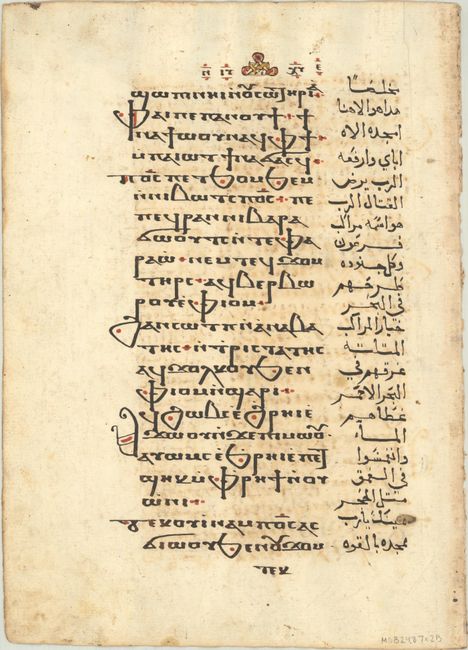 ϣⲱⲡⲓ ⲛⲏⲓ ⲛⲟⲩⲥⲱⲧⲏⲣⲓⲁ
ⲫⲁⲓ ⲡⲉ ⲡⲁⲛⲟⲩϯ ϯ
ⲛⲁϯⲱⲟⲩ ⲛⲁϥ ⲫϯ
ⲙⲡⲁⲓⲱⲧ ϯⲛⲁϭⲁⲥϥ
ⲡϭⲥ ⲡⲉⲧϧⲟⲙϧⲉⲙ
ⲛⲛⲓⲃⲱⲧⲥ ⲡϭⲥ ⲡⲉ
ⲡⲉϥⲣⲁⲛ ⲛⲓϩⲁⲣⲙⲁ
ϭⲱⲟⲩⲧⲥ ⲛⲧⲉ ⲫⲁ
ⲣⲁⲱ ⲛⲉⲙ ⲧⲉϥϫⲟⲙ
ⲧⲏⲣⲥ ⲁϥⲃⲉⲣⲃⲱ
ⲣⲟⲩ ⲉⲫⲓⲟⲙ
ϩⲁⲛⲥⲱⲧⲡ ⲛⲁⲛⲁⲃⲁ
ⲧⲏⲥ ⲛⲧⲣⲓⲥⲧⲁⲧⲏⲥ
ⲁϥϫⲟⲗⲕⲟⲩ ϧⲉⲛ
ⲫⲓⲟⲙ ⲛϣⲁⲣⲓ
ⲉϩⲣⲏⲓ ⲉ
ϫⲱⲟⲩ ⲛϫⲉ ⲡⲓⲙⲱⲟⲩ
ⲁⲩⲱⲙⲥ ⲉϧⲣⲏⲓ ⲉⲡⲉⲧ
ϣⲏⲕ ⲙⲫⲣⲏϯ ⲛⲟⲩ
ⲱⲛⲓ
ⲧⲉⲕⲟⲩⲓⲛⲁⲙ ⲡϭⲥ ⲁⲥ
ϭⲓⲱⲟⲩ ϧⲉⲛ ⲟⲩϫⲟⲙ
ⲧⲉⲕ
مخلصًا
هذا هو الاهنا
امجده الاه
ابي وارفعه
الرب يرض
القتال الرب
هو اسمه مراكب
فرعون
وكل جنوده
طرحهم
في البحر
خيار المراكب
المثلثة
غرقهم في
البحر الاحمر
غطاهم
الماء
وانغمسوا
في العمق
مثل الحجر
يمينك يارب
ممجده بالقوه
MDB2487c2B